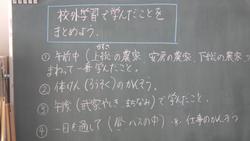 校外学習で学んだことを
まとめよう。
① 午前中(上松の農家、安原の農家、下松の農家
まわって一番学んだこと。
② 体けん(ろうそく)のかんそう。
③ 午後(武家やしき、まちなみ)で学んだこと。
④ 一日を通して( バスの中) 仕事のかんそう